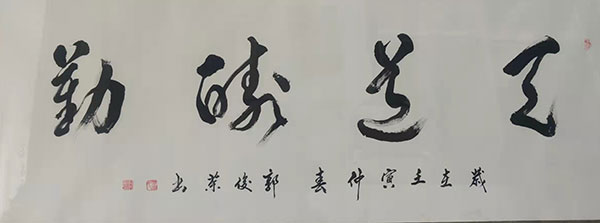 天道酬勤
歲在壬寅仲春郭俊榮书